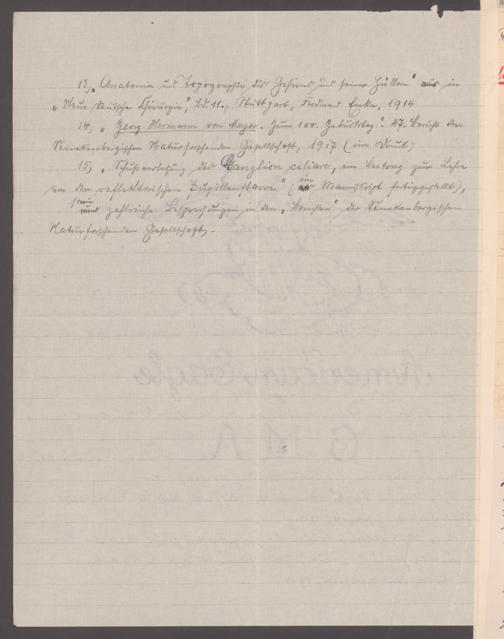 13, „Anatomie und Topographie des Gehirns und seiner Häute“ aus in
„Neue Deutsche Chirurgie“, Bd. 11., Stuttgart, Ferdinand Enke, 1914
14, „Georg Hermann von Meyer. Zum 100. Geburtstag“. 47. Bericht der
Senckenbergischen Naturforschenden Gesellschaft, 1917 (im Druck)
15, „Schußverletzung des Ganglion ciliare, ein Beitrag zur Lehre
von der reflektorischen Pupillenstarre“ (im Manuskript fertiggestellt),
sowie zahlreiche Besprechungen in den „Berichten“ der Senckenbergischen
Naturforschenden Gesellschaft.